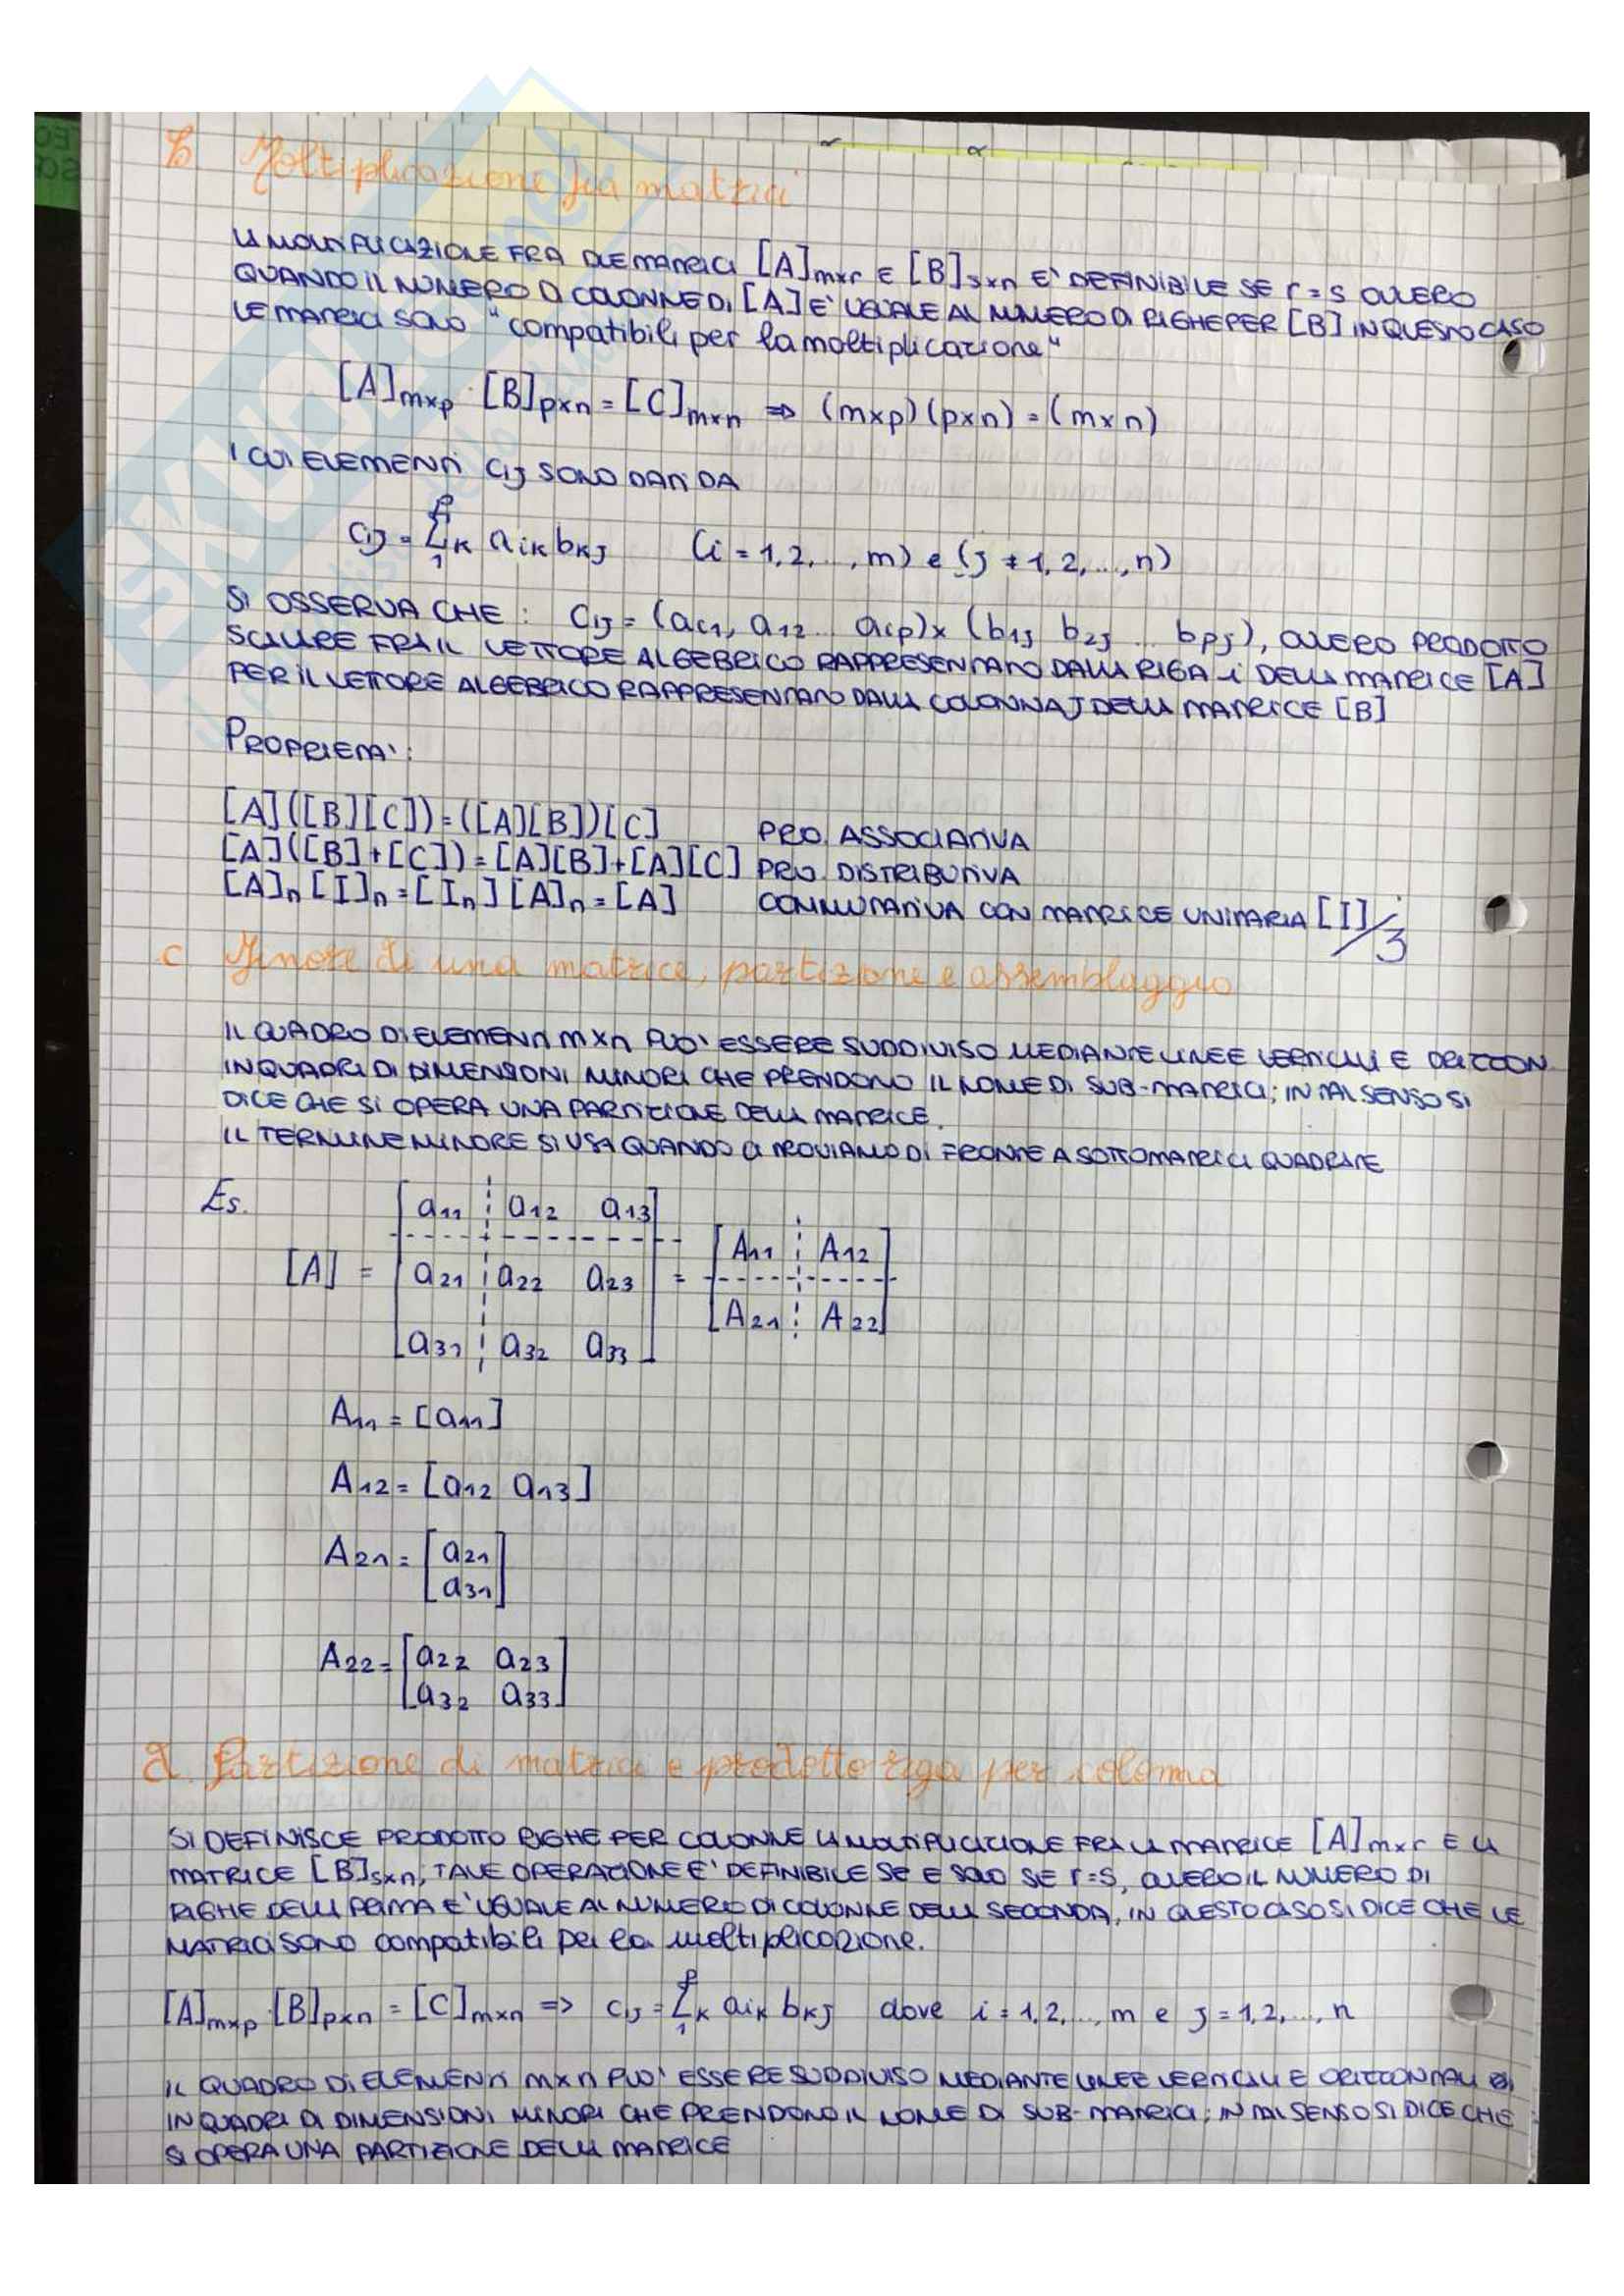 b Moltiplicazione fra matrici
LA MOLTIPLICAZIONE FRA DUE MATRICI [A]mxr E [B]sxn E' DEFINIBILE SE r=s OVVERO
QUANDO IL NUMERO DI COLONNE DI [A] E' UGUALE AL NUMERO DI RIGHE PER [B] IN QUESTO CASO
LE MATRICI SONO "compatibili per la moltiplicazione"
[A]mxp · [B]pxn = [C]mxn => (mxp)(pxn) = (mxn)
I CUI ELEMENTI cij SONO DATI DA
cij = Σ^p_1 k aik bkj (i = 1,2,...,m) e (j = 1,2,...,n)
SI OSSERVA CHE: cij = (ai1, a12 ... aip)x (b1j b2j ... bpj), OVVERO PRODOTTO
SCALARE FRA IL VETTORE ALGEBRICO RAPPRESENTATO DALLA RIGA i DELLA MATRICE [A]
PER IL VETTORE ALGEBRICO RAPPRESENTATO DALLA COLONNA J DELLA MATRICE [B]
PROPRIETA':
[A]([B][C]) = ([A][B])[C] PRO. ASSOCIATIVA
[A]([B]+[C]) = [A][B]+[A][C] PRO. DISTRIBUTIVA
[A]n [I]n = [In] [A]n = [A] COMMUTATIVA CON MATRICE UNITARIA [I]
3
c Minore di una matrice, partizione e assemblaggio
IL QUADRO DI ELEMENTI mxn PUO' ESSERE SUDDIVISO MEDIANTE LINEE VERTICALI E ORIZZON
IN QUADRI DI DIMENSIONI MINORI CHE PRENDONO IL NOME DI SUB-MATRICI; IN TAL SENSO SI
DICE CHE SI OPERA UNA PARTIZIONE DELLA MATRICE.
IL TERMINE MINORE SI USA QUANDO CI TROVIAMO DI FRONTE A SOTTOMATRICI QUADRATE
Es.
[A] = [a11 a12 a13
a21 a22 a23
a31 a32 a33] = [A11 A12
A21 A22]
A11 = [a11]
A12 = [a12 a13]
A21 = [a21
a31]
A22 = [a22 a23
a32 a33]
d. Partizione di matrici e prodotto riga per colonna
SI DEFINISCE PRODOTTO RIGHE PER COLONNE LA MOLTIPLICAZIONE FRA LA MATRICE [A]mxr E LA
MATRICE [B]sxn; TALE OPERAZIONE E' DEFINIBILE SE E SOLO SE r=s, OVVERO IL NUMERO DI
RIGHE DELLA PRIMA E' UGUALE AL NUMERO DI COLONNE DELLA SECONDA, IN QUESTO CASO SI DICE CHE LE
MATRICI SONO compatibili per la moltiplicazione.
[A]mxp · [B]pxn = [C]mxn => cij = Σ^p_1 k aik bkj dove i = 1,2,...,m e j = 1,2,...,n
IL QUADRO DI ELEMENTI mxn PUO' ESSERE SUDDIVISO MEDIANTE LINEE VERTICALI E ORIZZONTALI
IN QUADRI DI DIMENSIONI MINORI CHE PRENDONO IL NOME DI SUB-MATRICI; IN TAL SENSO SI DICE CHE
SI OPERA UNA PARTIZIONE DELLA MATRICE